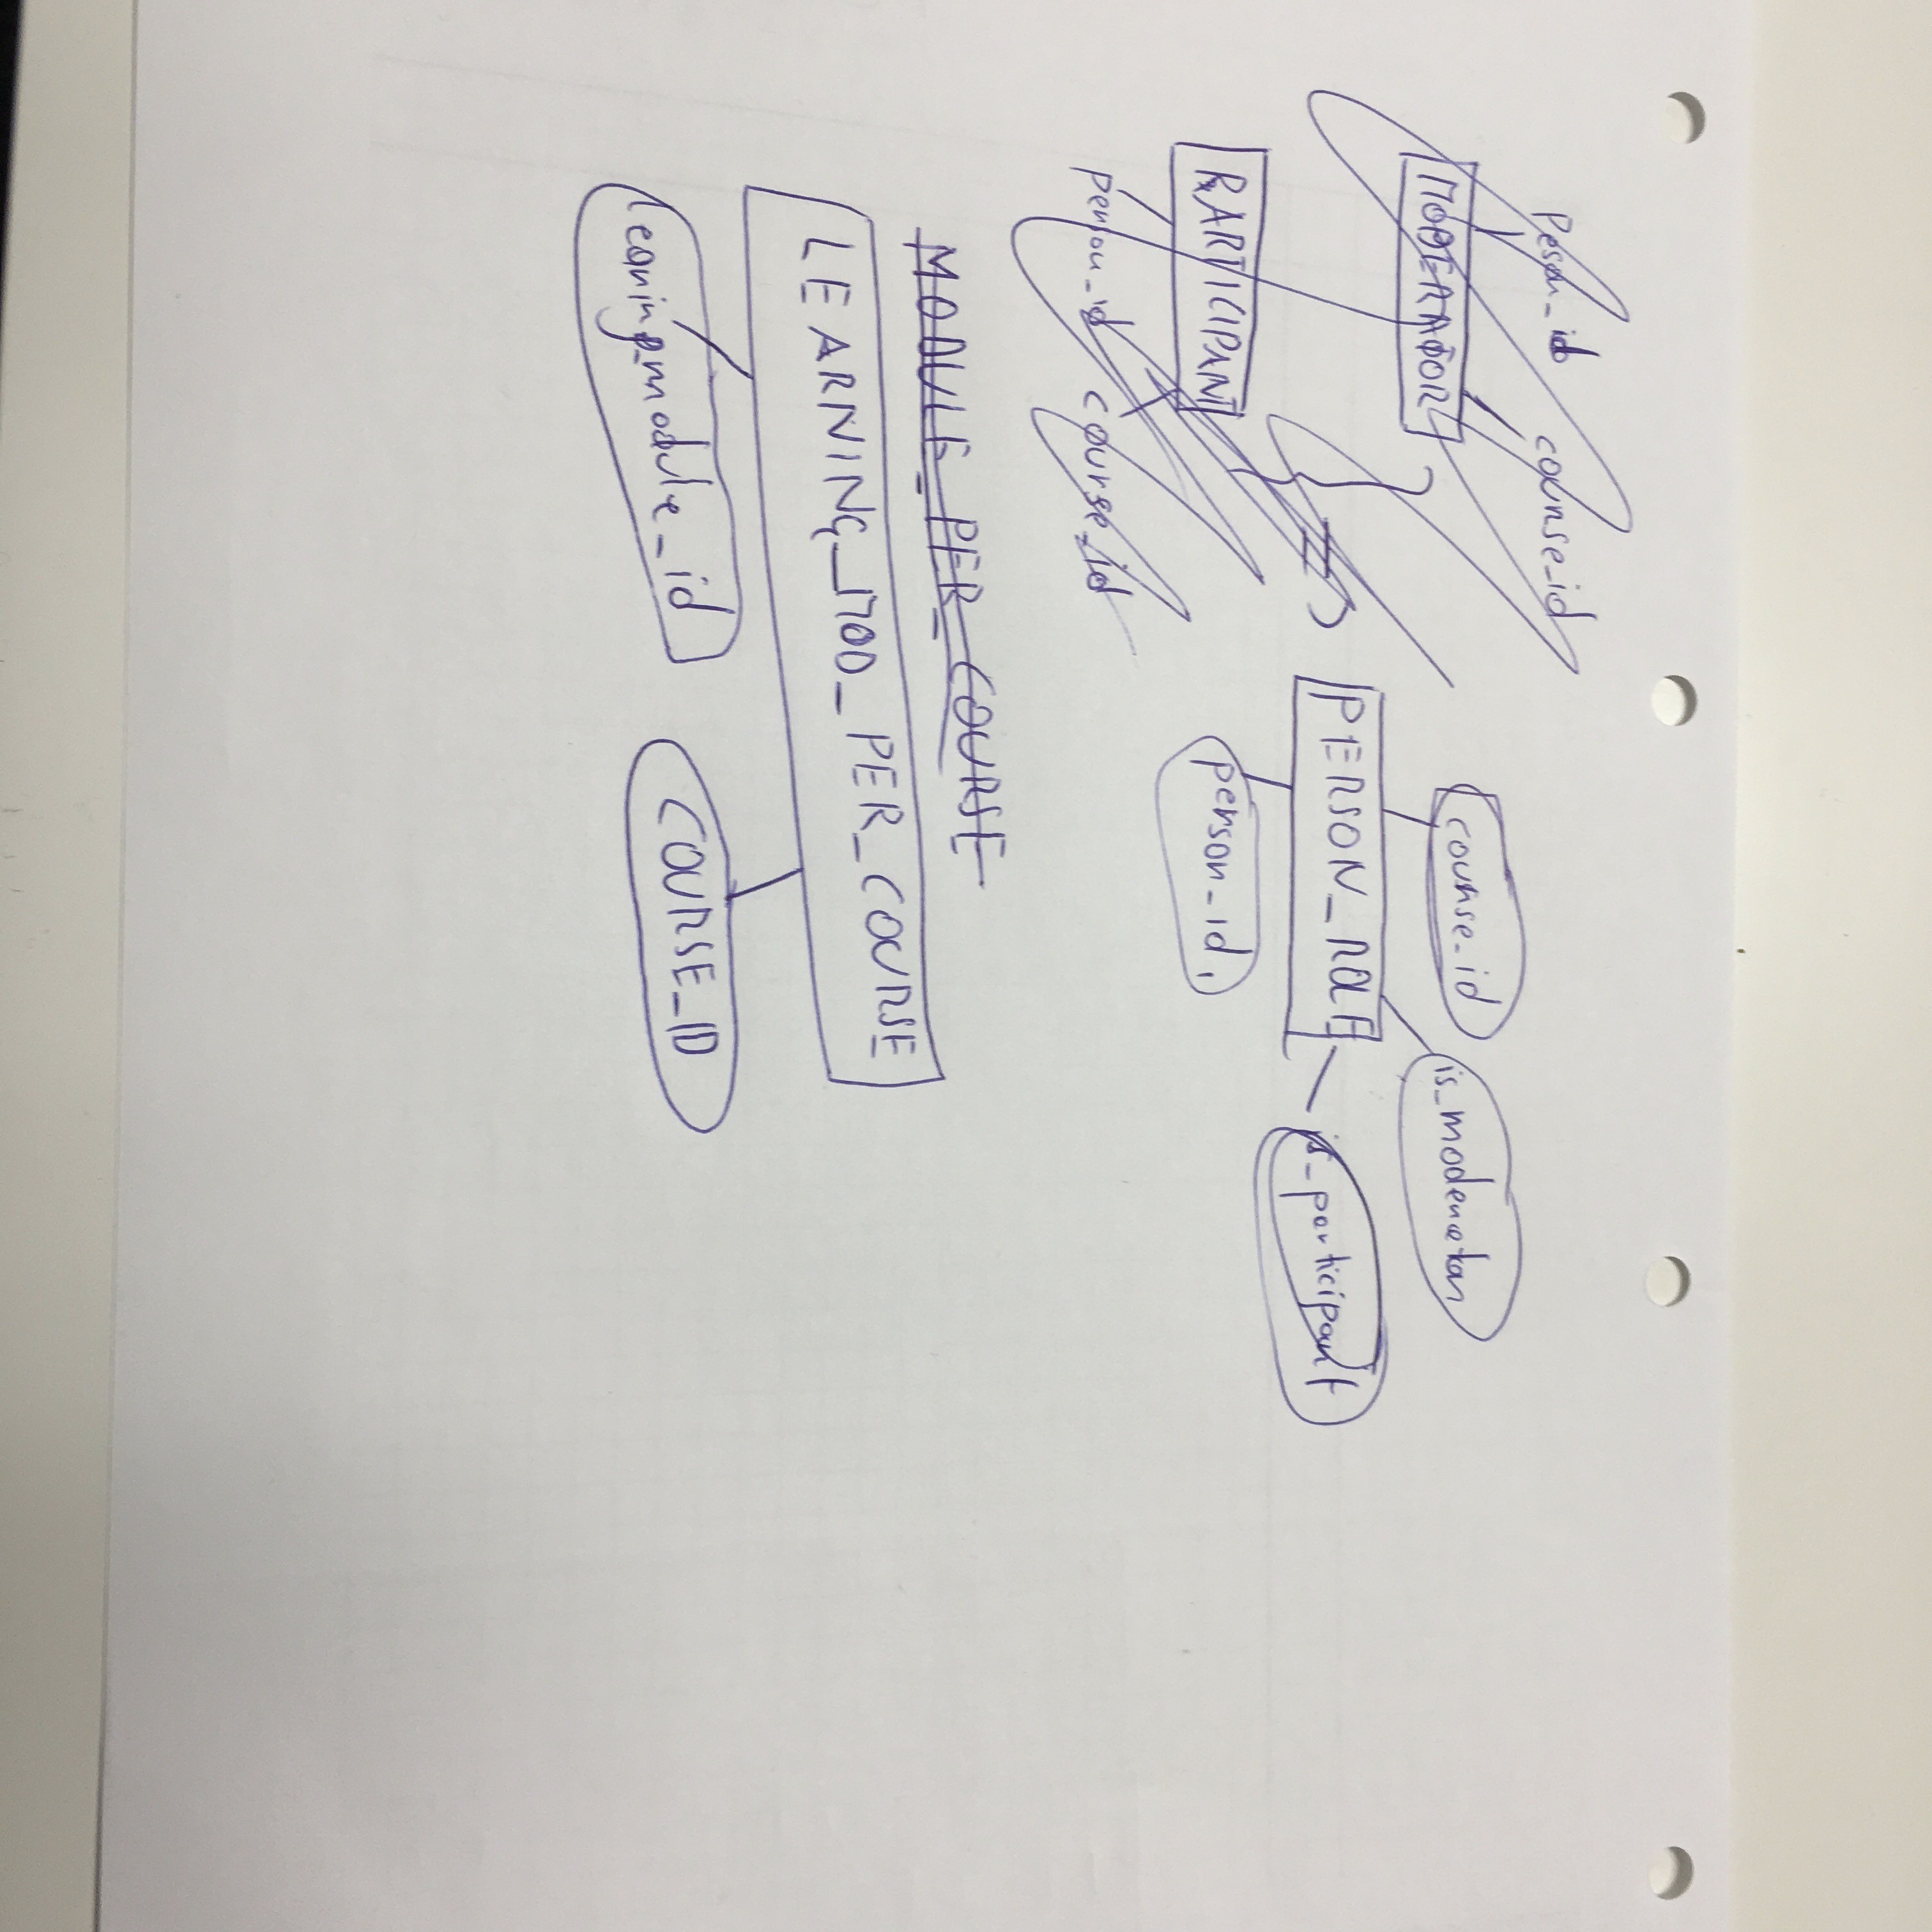 Peson_id course_id
MODERATOR
PARTICIPANT
person_id course_id
course_id is_moderator
PERSON_ROLE
person_id, is_participant
MODULE_PER_COURSE
LEARNING_MOD_PER_COURSE
learning_module_id COURSE_ID